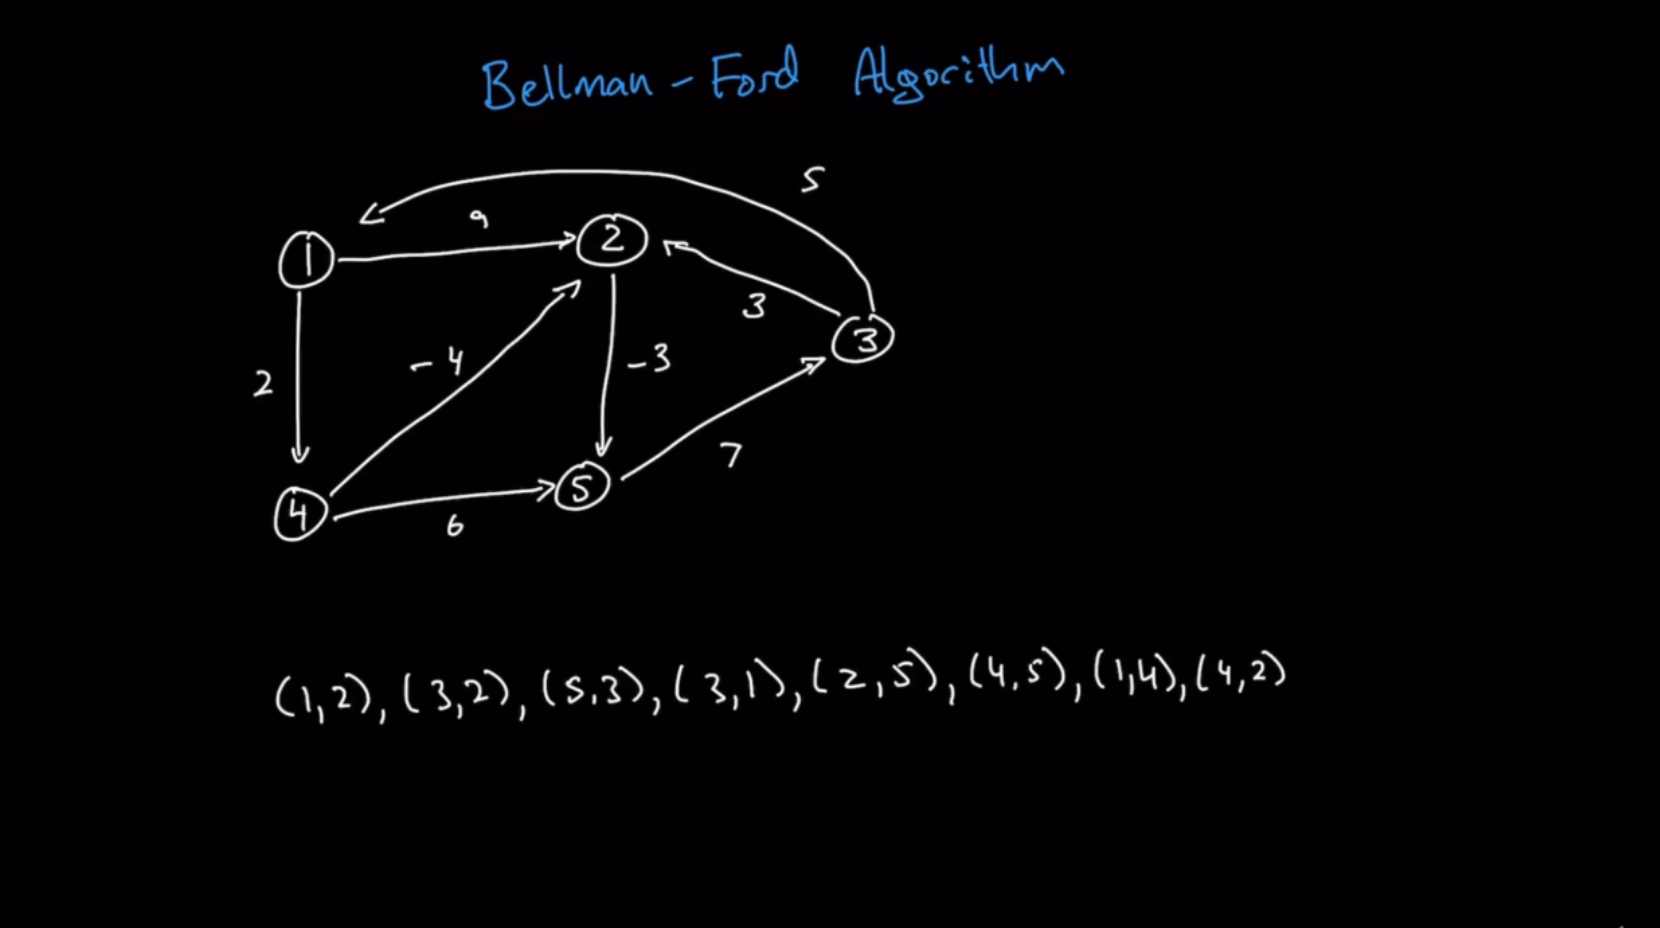 Bellman - Ford Algorithm
5
9
1
2
3
3
2
-4
-3
7
4
5
6
(1,2), (3,2), (5,3), (3,1), (2,5), (4,5), (1,4), (4,2)